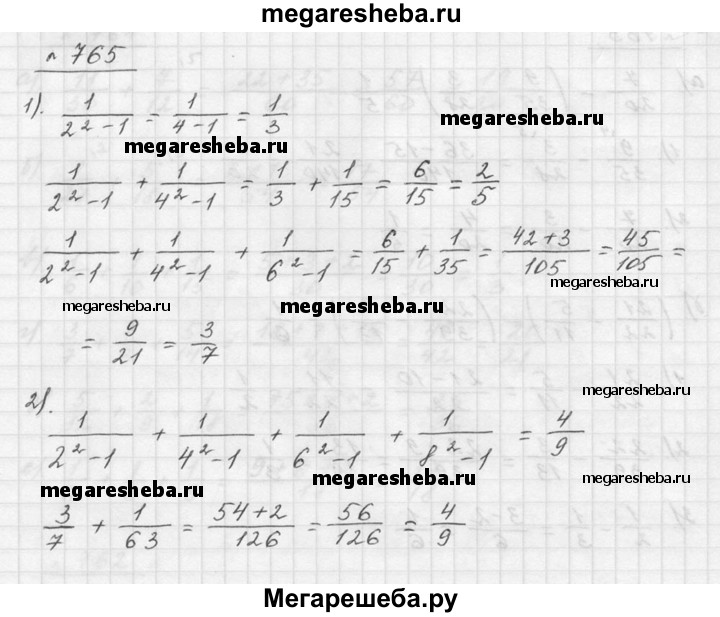 megaresheba.ru
№ 765
1). 1/(2²-1) = 1/(4-1) = 1/3
megaresheba.ru
megaresheba.ru
1/(2²-1) + 1/(4²-1) = 1/3 + 1/15 = 6/15 = 2/5
1/(2²-1) + 1/(4²-1) + 1/(6²-1) = 6/15 + 1/35 = (42+3)/105 = 45/105 =
megaresheba.ru
megaresheba.ru
megaresheba.ru
= 9/21 = 3/7
megaresheba.ru
2). 1/(2²-1) + 1/(4²-1) + 1/(6²-1) + 1/(8²-1) = 4/9
megaresheba.ru
megaresheba.ru
megaresheba.ru
3/7 + 1/63 = (54+2)/126 = 56/126 = 4/9
Мегарешеба.ру